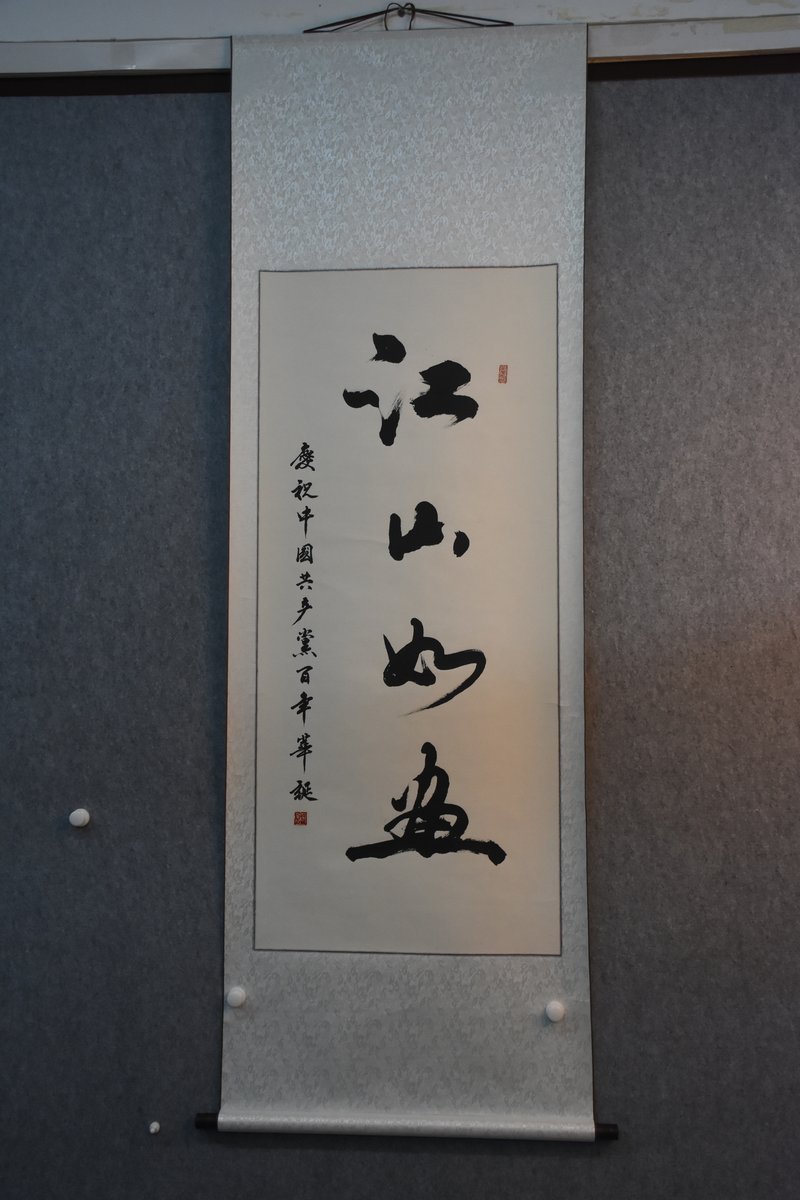 江山如画
慶祝中國共产黨百年華誕